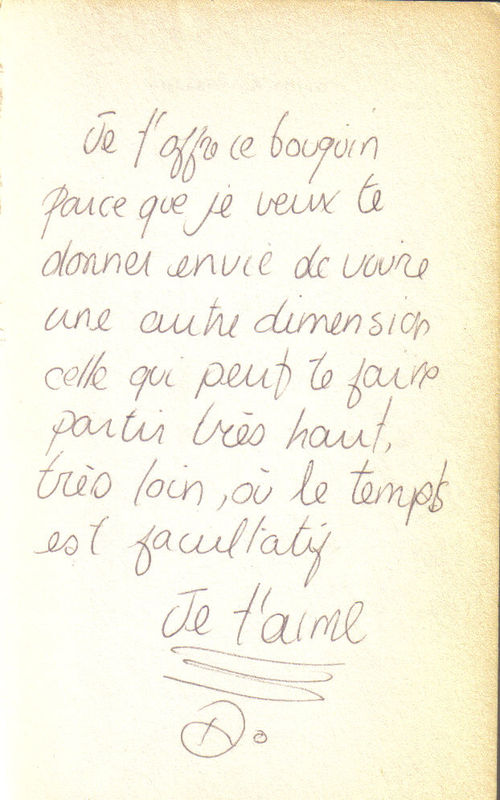 Je t'offre ce bouquin
parce que je veux te
donner envie de vivre
une autre dimension
celle qui peut te faire
partir très haut,
très loin, où le temps
est facultatif
Je t'aime